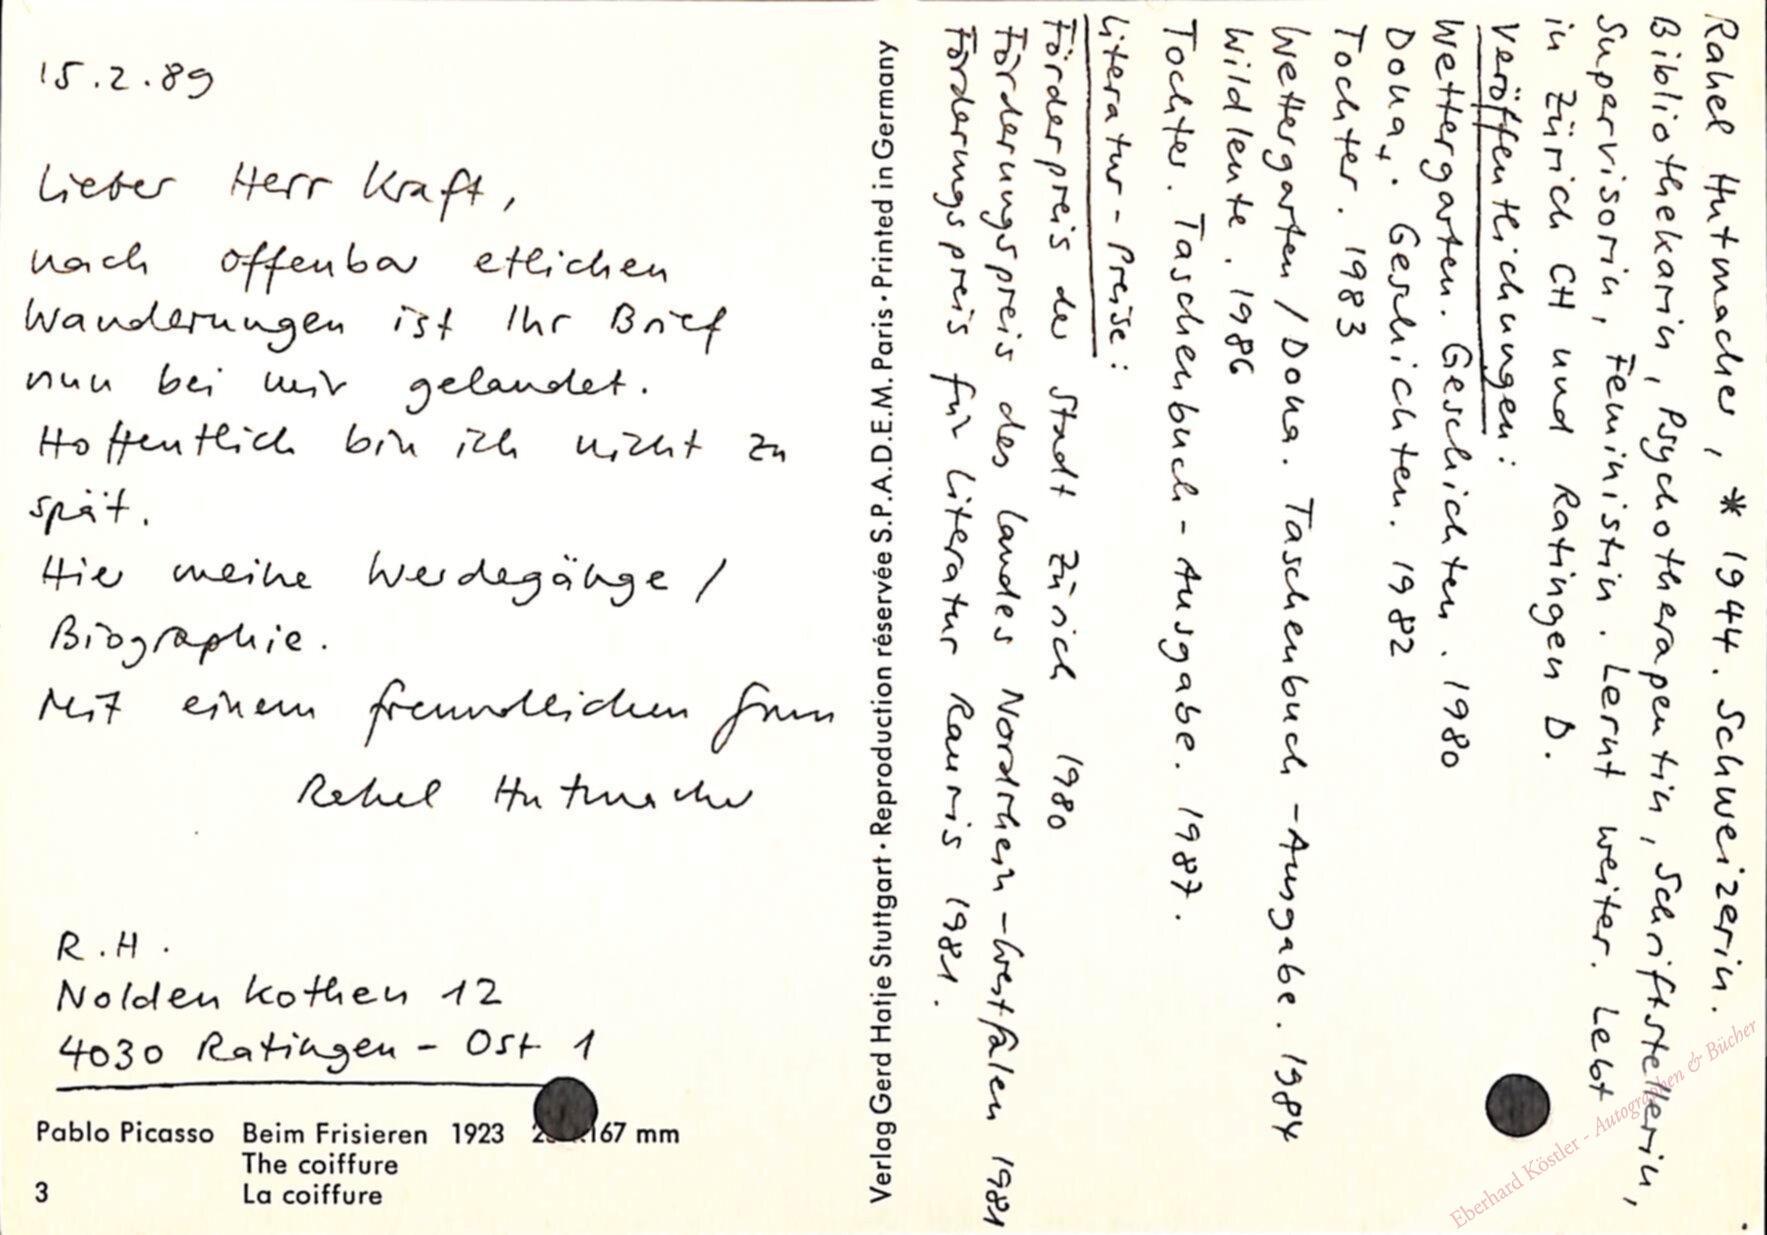 15.2.89
Lieber Herr Kraft,
nach offenbar etlichen
Wanderungen ist Ihr Brief
nun bei mir gelandet.
Hoffentlich bin ich nicht zu
spät.
Hier meine Werdegänge /
Biographie.
Mit einem freundlichen Gruss
Rahel Hutmacher
R.H.
Nolden Kothen 12
4030 Ratingen - Ost 1
Pablo Picasso Beim Frisieren 1923 167 mm
The coiffure
3 La coiffure
Verlag Gerd Hatje Stuttgart · Reproduction réservée S.P.A.D.E.M. Paris · Printed in Germany
Rahel Hutmacher, * 1944. Schweizerin.
Bibliothekarin, Psychotherapeutin, Schriftstellerin,
Supervisorin, Feministin. Lernt weiter. Lebt
in Zürich CH und Ratingen D.
Veröffentlichungen:
Wettergarten. Geschichten. 1980
Dona. Geschichten. 1982
Tochter. 1983
Wettergarten / Dona. Taschenbuch-Ausgabe. 1984
Wildleute. 1986
Tochter. Taschenbuch-Ausgabe. 1987.
Literatur-Preise:
Förderpreis der Stadt Zürich 1980
Förderungspreis des Landes Nordrhein-Westfalen 1981
Förderungspreis für Literatur Rauris 1981.
Eberhard Köstler - Autographen & Bücher